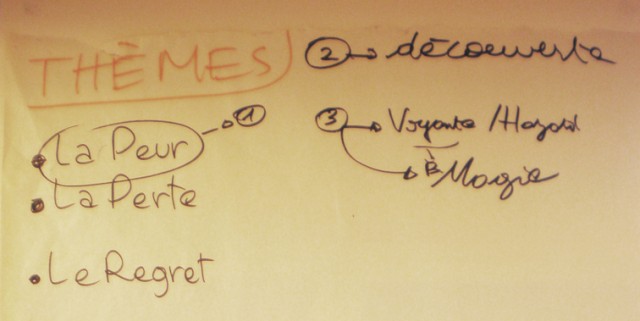 THÈMES
• La Peur → ①
• La Perte
• Le Regret
② → découverte
③ → Voyante / Hazard
→ Magie